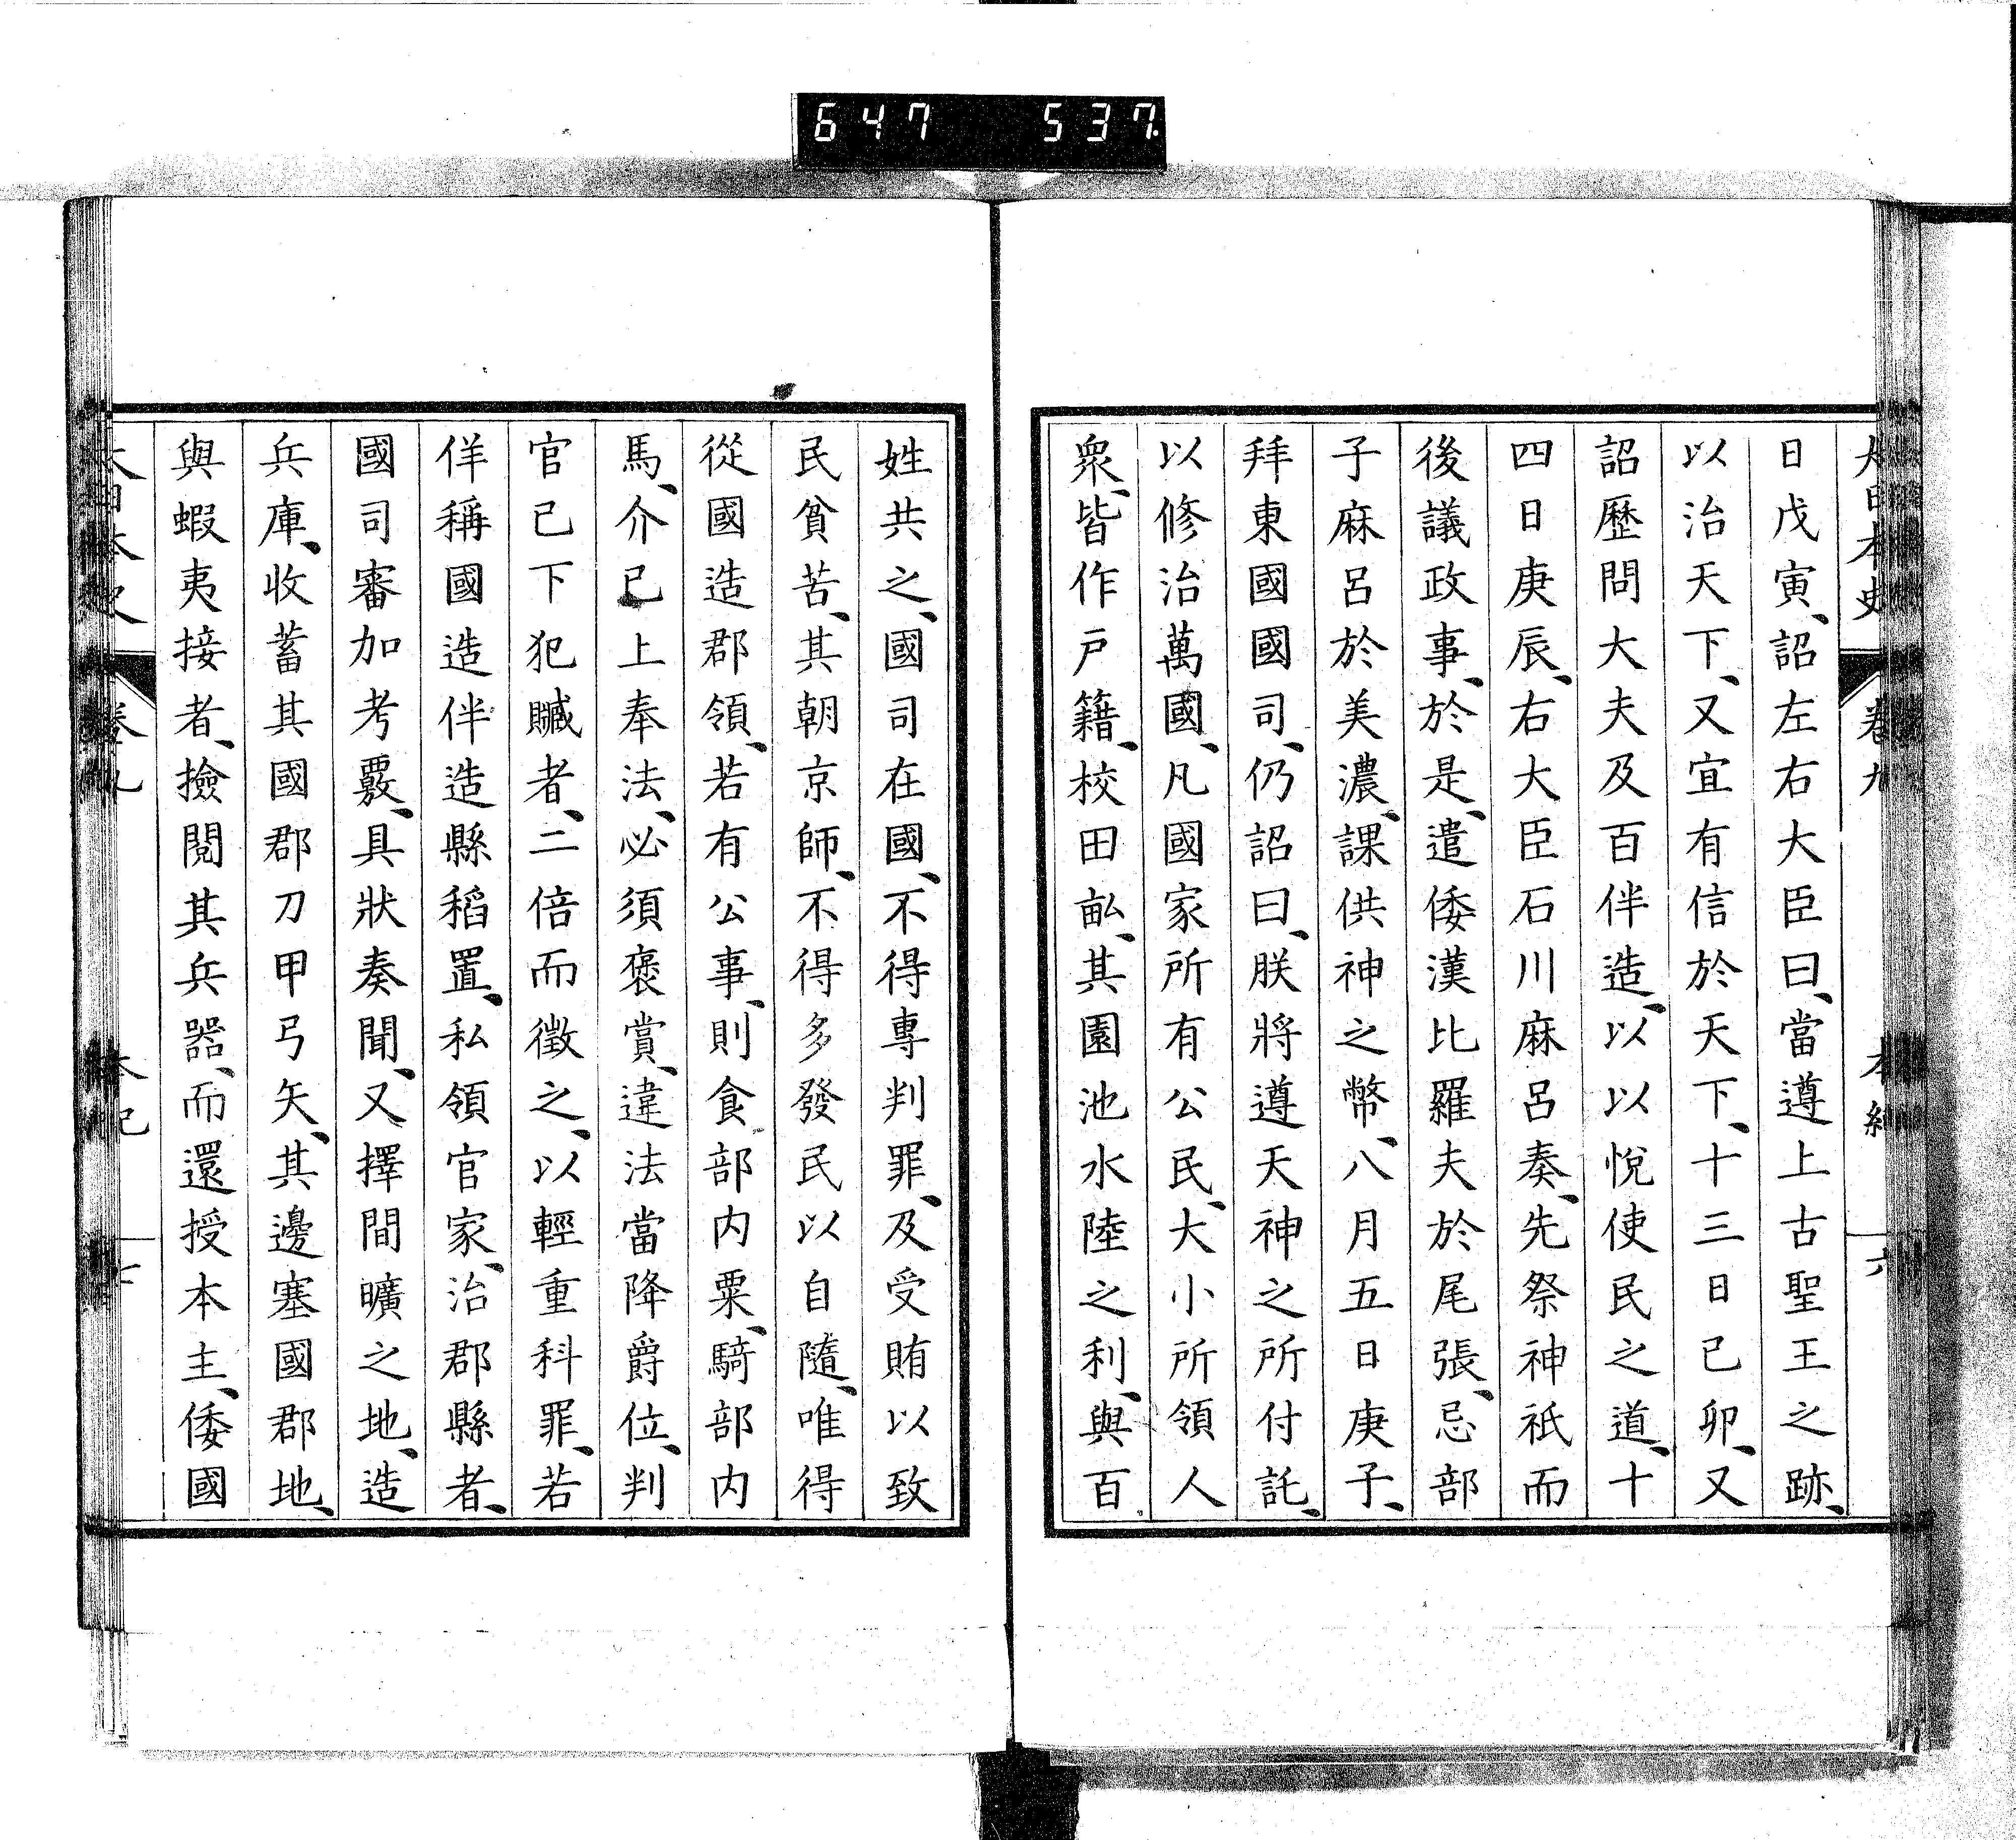 647 537
大日本史 卷九 本紀 六
日戊寅、詔左右大臣曰、當遵上古聖王之跡、
以治天下、又宜有信於天下、十三日己卯、又
詔歷問大夫及百伴造、以以悅使民之道、十
四日庚辰、右大臣石川麻呂奏、先祭神祇而
後議政事、於是、遣倭漢比羅夫於尾張、忌部
子麻呂於美濃、課供神之幣、八月五日庚子、
拜東國國司、仍詔曰、朕將遵天神之所付託、
以修治萬國、凡國家所有公民、大小所領人
衆、皆作戶籍、校田畝、其園池水陸之利、與百
姓共之、國司在國、不得專判罪、及受賄以致
民貧苦、其朝京師、不得多發民以自隨、唯得
從國造郡領、若有公事、則食部内粟、騎部内
馬、介已上奉法、必須褒賞、違法當降爵位、判
官已下犯贓者、二倍而徵之、以輕重科罪、若
佯稱國造伴造縣稻置、私領官家、治郡縣者、
國司審加考覈、具狀奏聞、又擇間曠之地、造
兵庫、收蓄其國郡刀甲弓矢、其邊塞國郡地、
與蝦夷接者、撿閱其兵器、而還授本主、倭國
大日本史 卷九 本紀 七